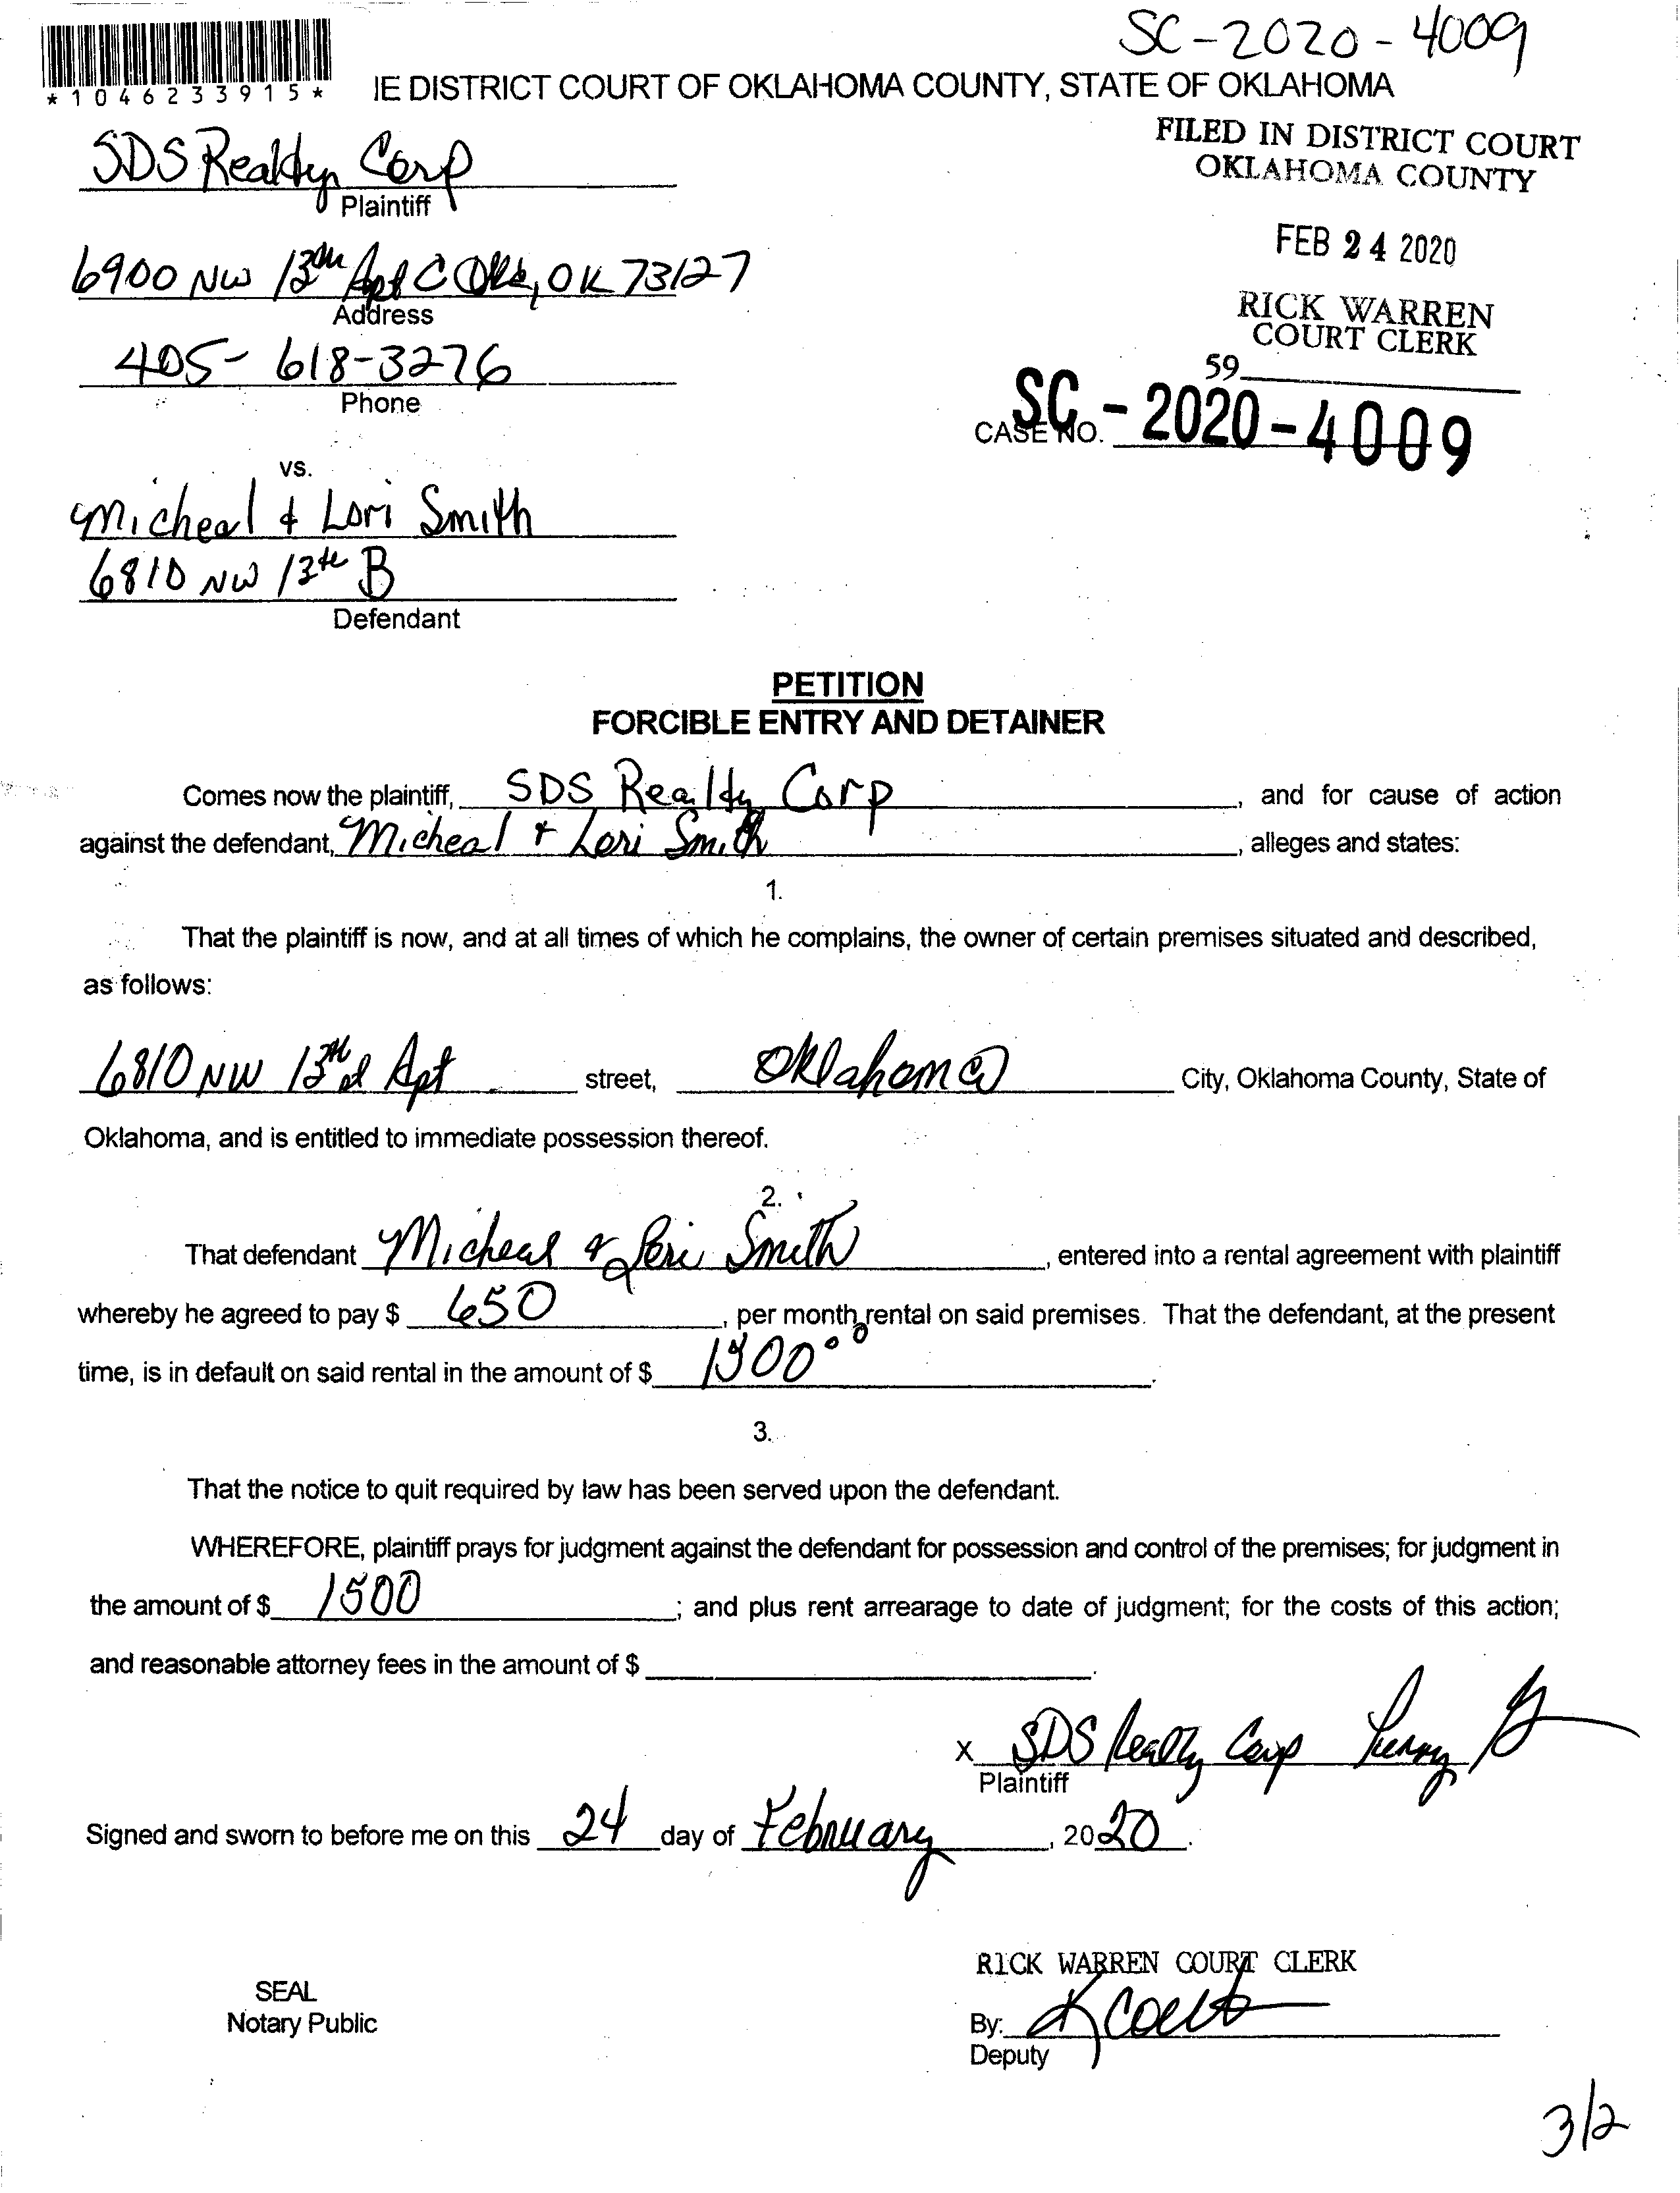 SC-2020-4009
*1046233915*
IE DISTRICT COURT OF OKLAHOMA COUNTY, STATE OF OKLAHOMA
FILED IN DISTRICT COURT
OKLAHOMA COUNTY
SDS Realty Corp
Plaintiff
FEB 24 2020
6900 NW 13th Apt C OKC, OK 73127
Address
RICK WARREN
COURT CLERK
405-618-3276
Phone
59
CASE NO. SC-2020-4009
vs.
Micheal & Lori Smith
6810 NW 13th B
Defendant
PETITION
FORCIBLE ENTRY AND DETAINER
Comes now the plaintiff, SDS Realty Corp, and for cause of action
against the defendant, Micheal & Lori Smith, alleges and states:
1.
That the plaintiff is now, and at all times of which he complains, the owner of certain premises situated and described,
as follows:
6810 NW 13th Apt street, Oklahoma City, Oklahoma County, State of
Oklahoma, and is entitled to immediate possession thereof.
2.
That defendant Micheal & Lori Smith, entered into a rental agreement with plaintiff
whereby he agreed to pay $ 650, per month rental on said premises. That the defendant, at the present
time, is in default on said rental in the amount of $ .
3.
That the notice to quit required by law has been served upon the defendant.
WHEREFORE, plaintiff prays for judgment against the defendant for possession and control of the premises; for judgment in
the amount of $ 1500; and plus rent arrearage to date of judgment; for the costs of this action;
and reasonable attorney fees in the amount of $ .
x SDS Realty Corp
Plaintiff
Signed and sworn to before me on this 24 day of February, 2020.
RICK WARREN COURT CLERK
SEAL
Notary Public
By:
Deputy
3/2